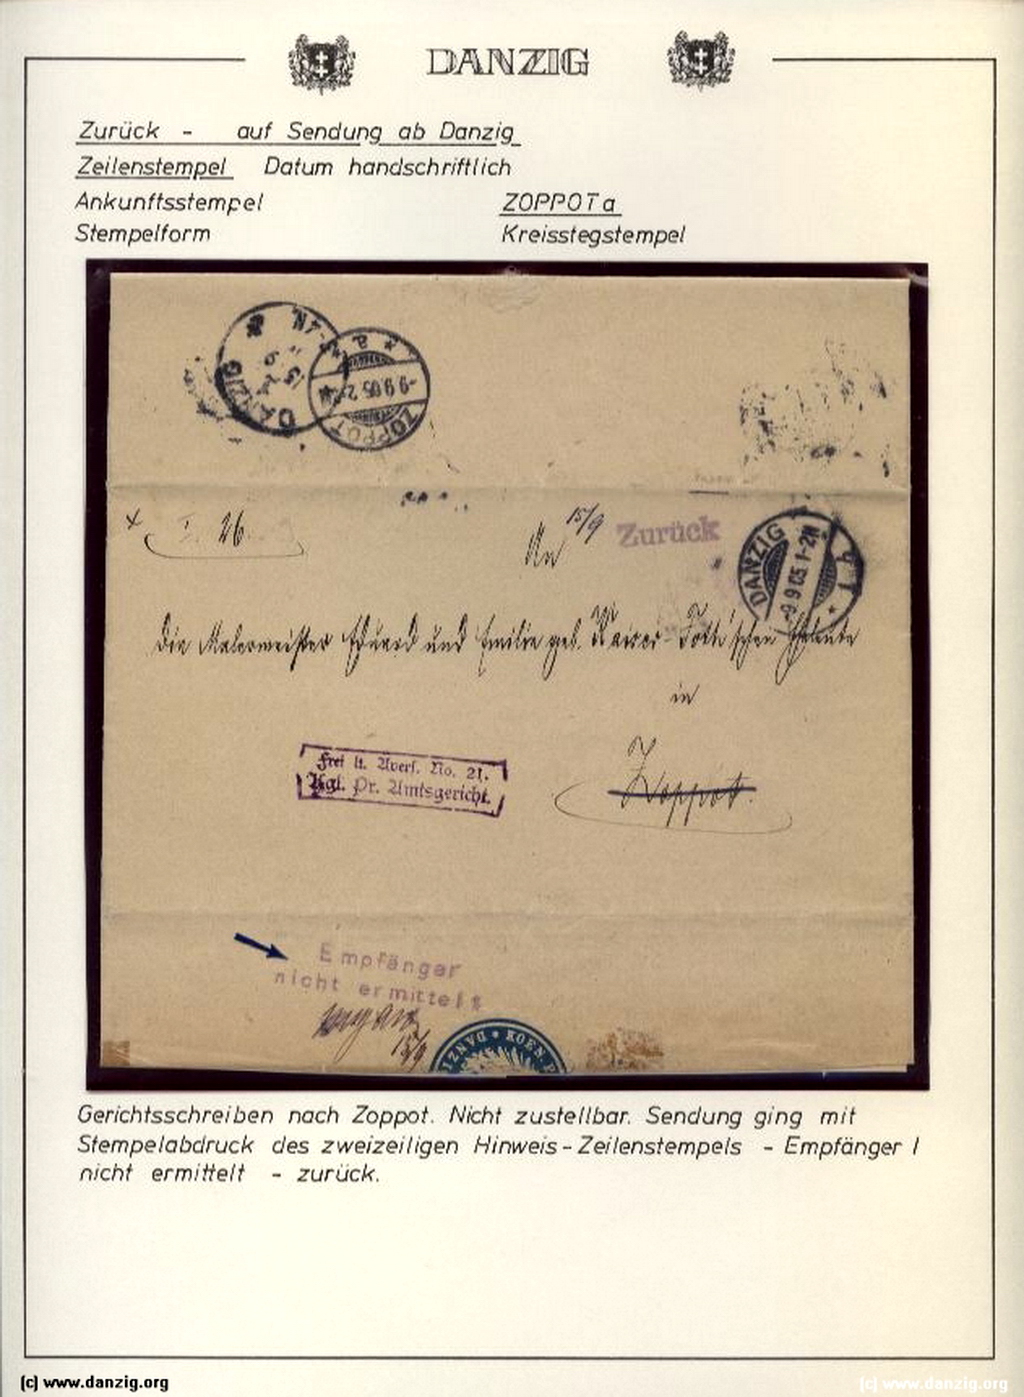 DANZIG
Zurück - auf Sendung ab Danzig
Zeilenstempel Datum handschriftlich
Ankunftsstempel ZOPPOT a
Stempelform Kreisstegstempel
DANZIG
4-5 N
ZOPPOT
-9.9.05.2-
* a *
26
15/9
An
Zurück
DANZIG
-9.9.05.1-2N
* 1
die Malermeister Eduard und Emilie geb. Kaiser-Toth'schen Eheleute
in
Zoppot.
Frei lt. Avers. No. 21.
Kgl. Pr. Amtsgericht.
Empfänger
nicht ermittelt
15/9
DANZI * KOEN. P
Gerichtsschreiben nach Zoppot. Nicht zustellbar. Sendung ging mit
Stempelabdruck des zweizeiligen Hinweis-Zeilenstempels - Empfänger /
nicht ermittelt - zurück.
(c) www.danzig.org
(c) www.danzig.org